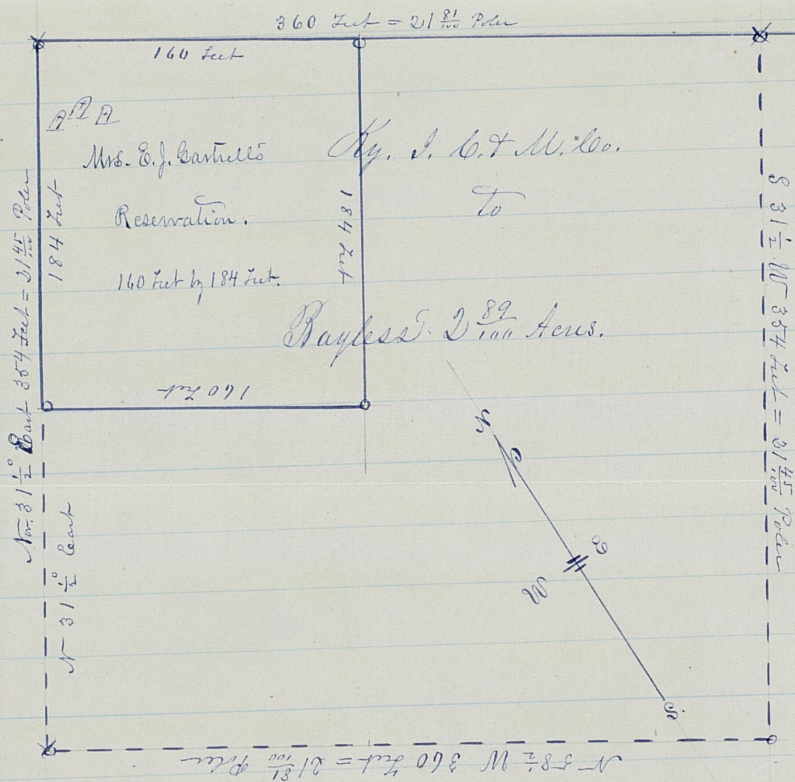 360 Feet = 21 81/100 Poles
160 Feet
Mrs. E. J. Gartrell's
Reservation.
160 Feet by 184 Feet.
184 Feet
184 Feet
160 Feet
Ky. I. C. & M. Co.
to
Bayless 2 89/100 Acres.
No. 31 1/2° East 354 Feet = 21 45/100 Poles
N 31 1/2° East
S 31 1/2 W 354 Feet = 21 45/100 Poles
N 58 1/2 W 360 Feet = 21 81/100 Poles